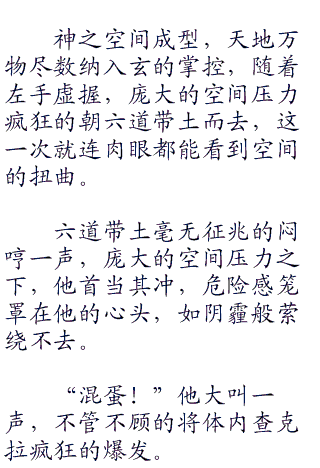 神之空间成型，天地万
物尽数纳入玄的掌控，随着
左手虚握，庞大的空间压力
疯狂的朝六道带土而去，这
一次就连肉眼都能看到空间
的扭曲。
六道带土毫无征兆的闷
哼一声，庞大的空间压力之
下，他首当其冲，危险感笼
罩在他的心头，如阴霾般萦
绕不去。
“混蛋！”他大叫一
声，不管不顾的将体内查克
拉疯狂的爆发。